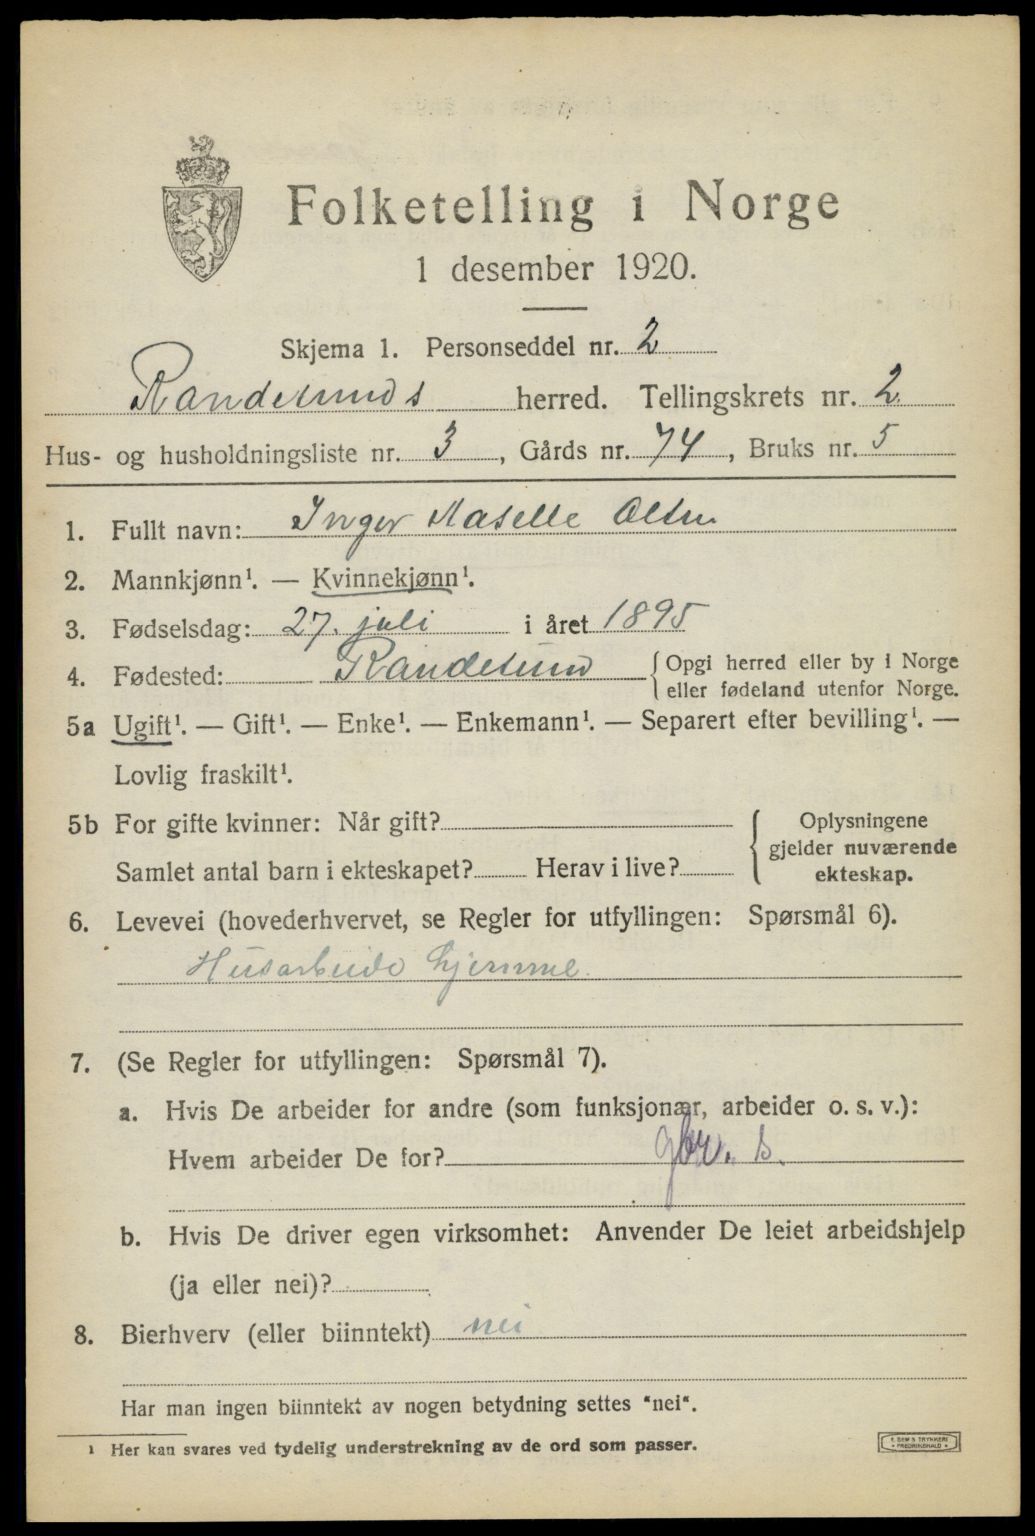 Folketelling i Norge
1 desember 1920.
Skjema 1. Personseddel nr. 2
Randesunds herred. Tellingskrets nr. 2.
Hus- og husholdningsliste nr. 3, Gårds nr. 74, Bruks nr. 5
1. Fullt navn: Inger Olsen
2. Mannkjønn¹. — Kvinnekjønn¹.
3. Fødselsdag: 27. juli i året 1895
4. Fødested: Randesund { Opgi herred eller by i Norge
eller fødeland utenfor Norge.
5a Ugift¹. — Gift¹. — Enke¹. — Enkemann¹. — Separert efter bevilling¹. —
Lovlig fraskilt¹.
5b For gifte kvinner: Når gift?
Samlet antal barn i ekteskapet? Herav i live?
{ Oplysningene
gjelder nuværende
ekteskap.
6. Levevei (hovederhvervet, se Regler for utfyllingen: Spørsmål 6).
Husarbeide hjemme.
7. (Se Regler for utfyllingen: Spørsmål 7).
a. Hvis De arbeider for andre (som funksjonær, arbeider o. s. v.):
Hvem arbeider De for?
b. Hvis De driver egen virksomhet: Anvender De leiet arbeidshjelp
(ja eller nei)?
8. Bierhverv (eller biinntekt) nei
Har man ingen biinntekt av nogen betydning settes "nei".
¹ Her kan svares ved tydelig understrekning av de ord som passer.
TRYKKERI
FREDRIKSHALD